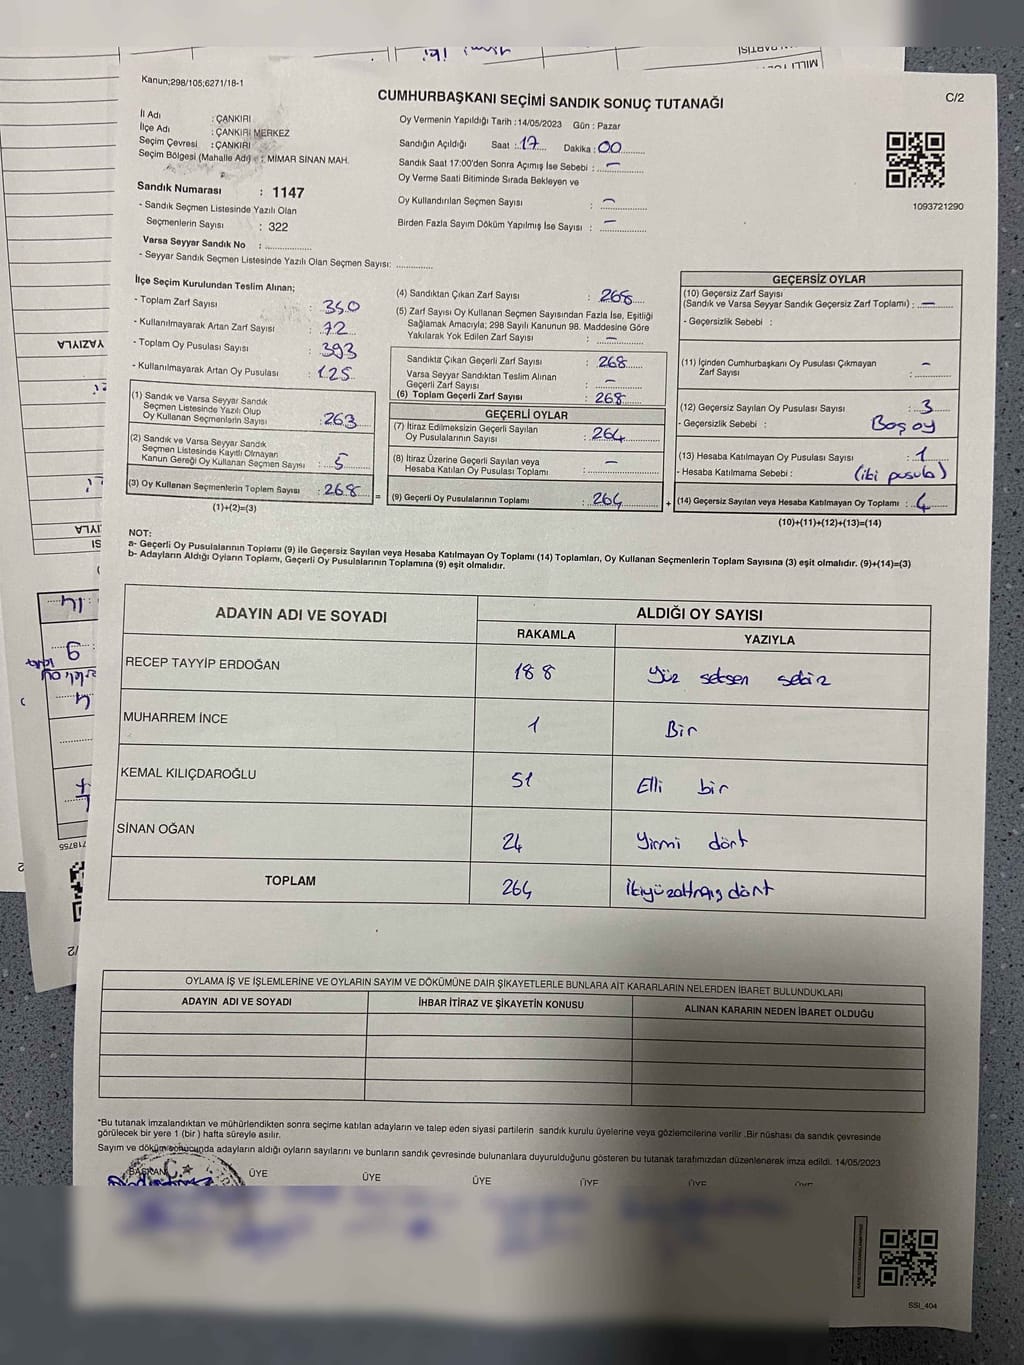 Kanun;298/105;6271/18-1
CUMHURBAŞKANI SEÇİMİ SANDIK SONUÇ TUTANAĞI
C/2
İl Adı : ÇANKIRI
İlçe Adı : ÇANKIRI MERKEZ
Seçim Çevresi : ÇANKIRI
Seçim Bölgesi (Mahalle Adı) : MİMAR SİNAN MAH.
Sandık Numarası : 1147
- Sandık Seçmen Listesinde Yazılı Olan
Seçmenlerin Sayısı : 322
Varsa Seyyar Sandık No : ..............
- Seyyar Sandık Seçmen Listesinde Yazılı Olan Seçmen Sayısı: ..............
Oy Vermenin Yapıldığı Tarih : 14/05/2023 Gün : Pazar
Sandığın Açıldığı Saat : 17 Dakika : 00
Sandık Saat 17:00'den Sonra Açımış İse Sebebi : –
Oy Verme Saati Bitiminde Sırada Bekleyen ve
Oy Kullandırılan Seçmen Sayısı : –
Birden Fazla Sayım Döküm Yapılmış İse Sayısı : –
1093721290
İlçe Seçim Kurulundan Teslim Alınan;
- Toplam Zarf Sayısı : 350
- Kullanılmayarak Artan Zarf Sayısı : 72
- Toplam Oy Pusulası Sayısı : 393
- Kullanılmayarak Artan Oy Pusulası : 125
(1) Sandık ve Varsa Seyyar Sandık
Seçmen Listesinde Yazılı Olup
Oy Kullanan Seçmenlerin Sayısı : 263
(2) Sandık ve Varsa Seyyar Sandık
Seçmen Listesinde Kayıtlı Olmayan
Kanun Gereği Oy Kullanan Seçmen Sayısı : 5
(3) Oy Kullanan Seçmenlerin Toplam Sayısı : 268
(1)+(2)=(3)
=
(4) Sandıktan Çıkan Zarf Sayısı : 268
(5) Zarf Sayısı Oy Kullanan Seçmen Sayısından Fazla İse, Eşitliği
Sağlamak Amacıyla; 298 Sayılı Kanunun 98. Maddesine Göre
Yakılarak Yok Edilen Zarf Sayısı : –
Sandıktan Çıkan Geçerli Zarf Sayısı : 268
Varsa Seyyar Sandıktan Teslim Alınan
Geçerli Zarf Sayısı : –
(6) Toplam Geçerli Zarf Sayısı : 268
GEÇERLİ OYLAR
(7) İtiraz Edilmeksizin Geçerli Sayılan
Oy Pusulalarının Sayısı : 264
(8) İtiraz Üzerine Geçerli Sayılan veya
Hesaba Katılan Oy Pusulası Toplamı : –
(9) Geçerli Oy Pusulalarının Toplamı : 264
+
GEÇERSİZ OYLAR
(10) Geçersiz Zarf Sayısı
(Sandık ve Varsa Seyyar Sandık Geçersiz Zarf Toplamı) : –
- Geçersizlik Sebebi :
(11) İçinden Cumhurbaşkanı Oy Pusulası Çıkmayan
Zarf Sayısı : –
(12) Geçersiz Sayılan Oy Pusulası Sayısı : 3
- Geçersizlik Sebebi : Boş oy
(13) Hesaba Katılmayan Oy Pusulası Sayısı : 1
- Hesaba Katılmama Sebebi : (iki pusula)
(14) Geçersiz Sayılan veya Hesaba Katılmayan Oy Toplamı : 4
(10)+(11)+(12)+(13)=(14)
NOT:
a- Geçerli Oy Pusulalarının Toplamı (9) ile Geçersiz Sayılan veya Hesaba Katılmayan Oy Toplamı (14) Toplamları, Oy Kullanan Seçmenlerin Toplam Sayısına (3) eşit olmalıdır. (9)+(14)=(3)
b- Adayların Aldığı Oyların Toplamı, Geçerli Oy Pusulalarının Toplamına (9) eşit olmalıdır.
ADAYIN ADI VE SOYADI
ALDIĞI OY SAYISI
RAKAMLA YAZIYLA
RECEP TAYYİP ERDOĞAN 188 Yüz seksen sekiz
MUHARREM İNCE 1 Bir
KEMAL KILIÇDAROĞLU 51 Elli bir
SİNAN OĞAN 24 Yirmi dört
TOPLAM 264 İkiyüzaltmış dört
OYLAMA İŞ VE İŞLEMLERİNE VE OYLARIN SAYIM VE DÖKÜMÜNE DAİR ŞİKAYETLERLE BUNLARA AİT KARARLARIN NELERDEN İBARET BULUNDUKLARI
ADAYIN ADI VE SOYADI İHBAR İTİRAZ VE ŞİKAYETİN KONUSU ALINAN KARARIN NEDEN İBARET OLDUĞU
*Bu tutanak imzalandıktan ve mühürlendikten sonra seçime katılan adayların ve talep eden siyasi partilerin sandık kurulu üyelerine veya gözlemcilerine verilir .Bir nüshası da sandık çevresinde
görülecek bir yere 1 (bir ) hafta süreyle asılır.
Sayım ve döküm sonucunda adayların aldığı oyların sayılarını ve bunların sandık çevresinde bulunanlara duyurulduğunu gösteren bu tutanak tarafımızdan düzenlenerek imza edildi. 14/05/2023
BAŞKAN ÜYE ÜYE ÜYE ÜYE ÜYE
SSI_404